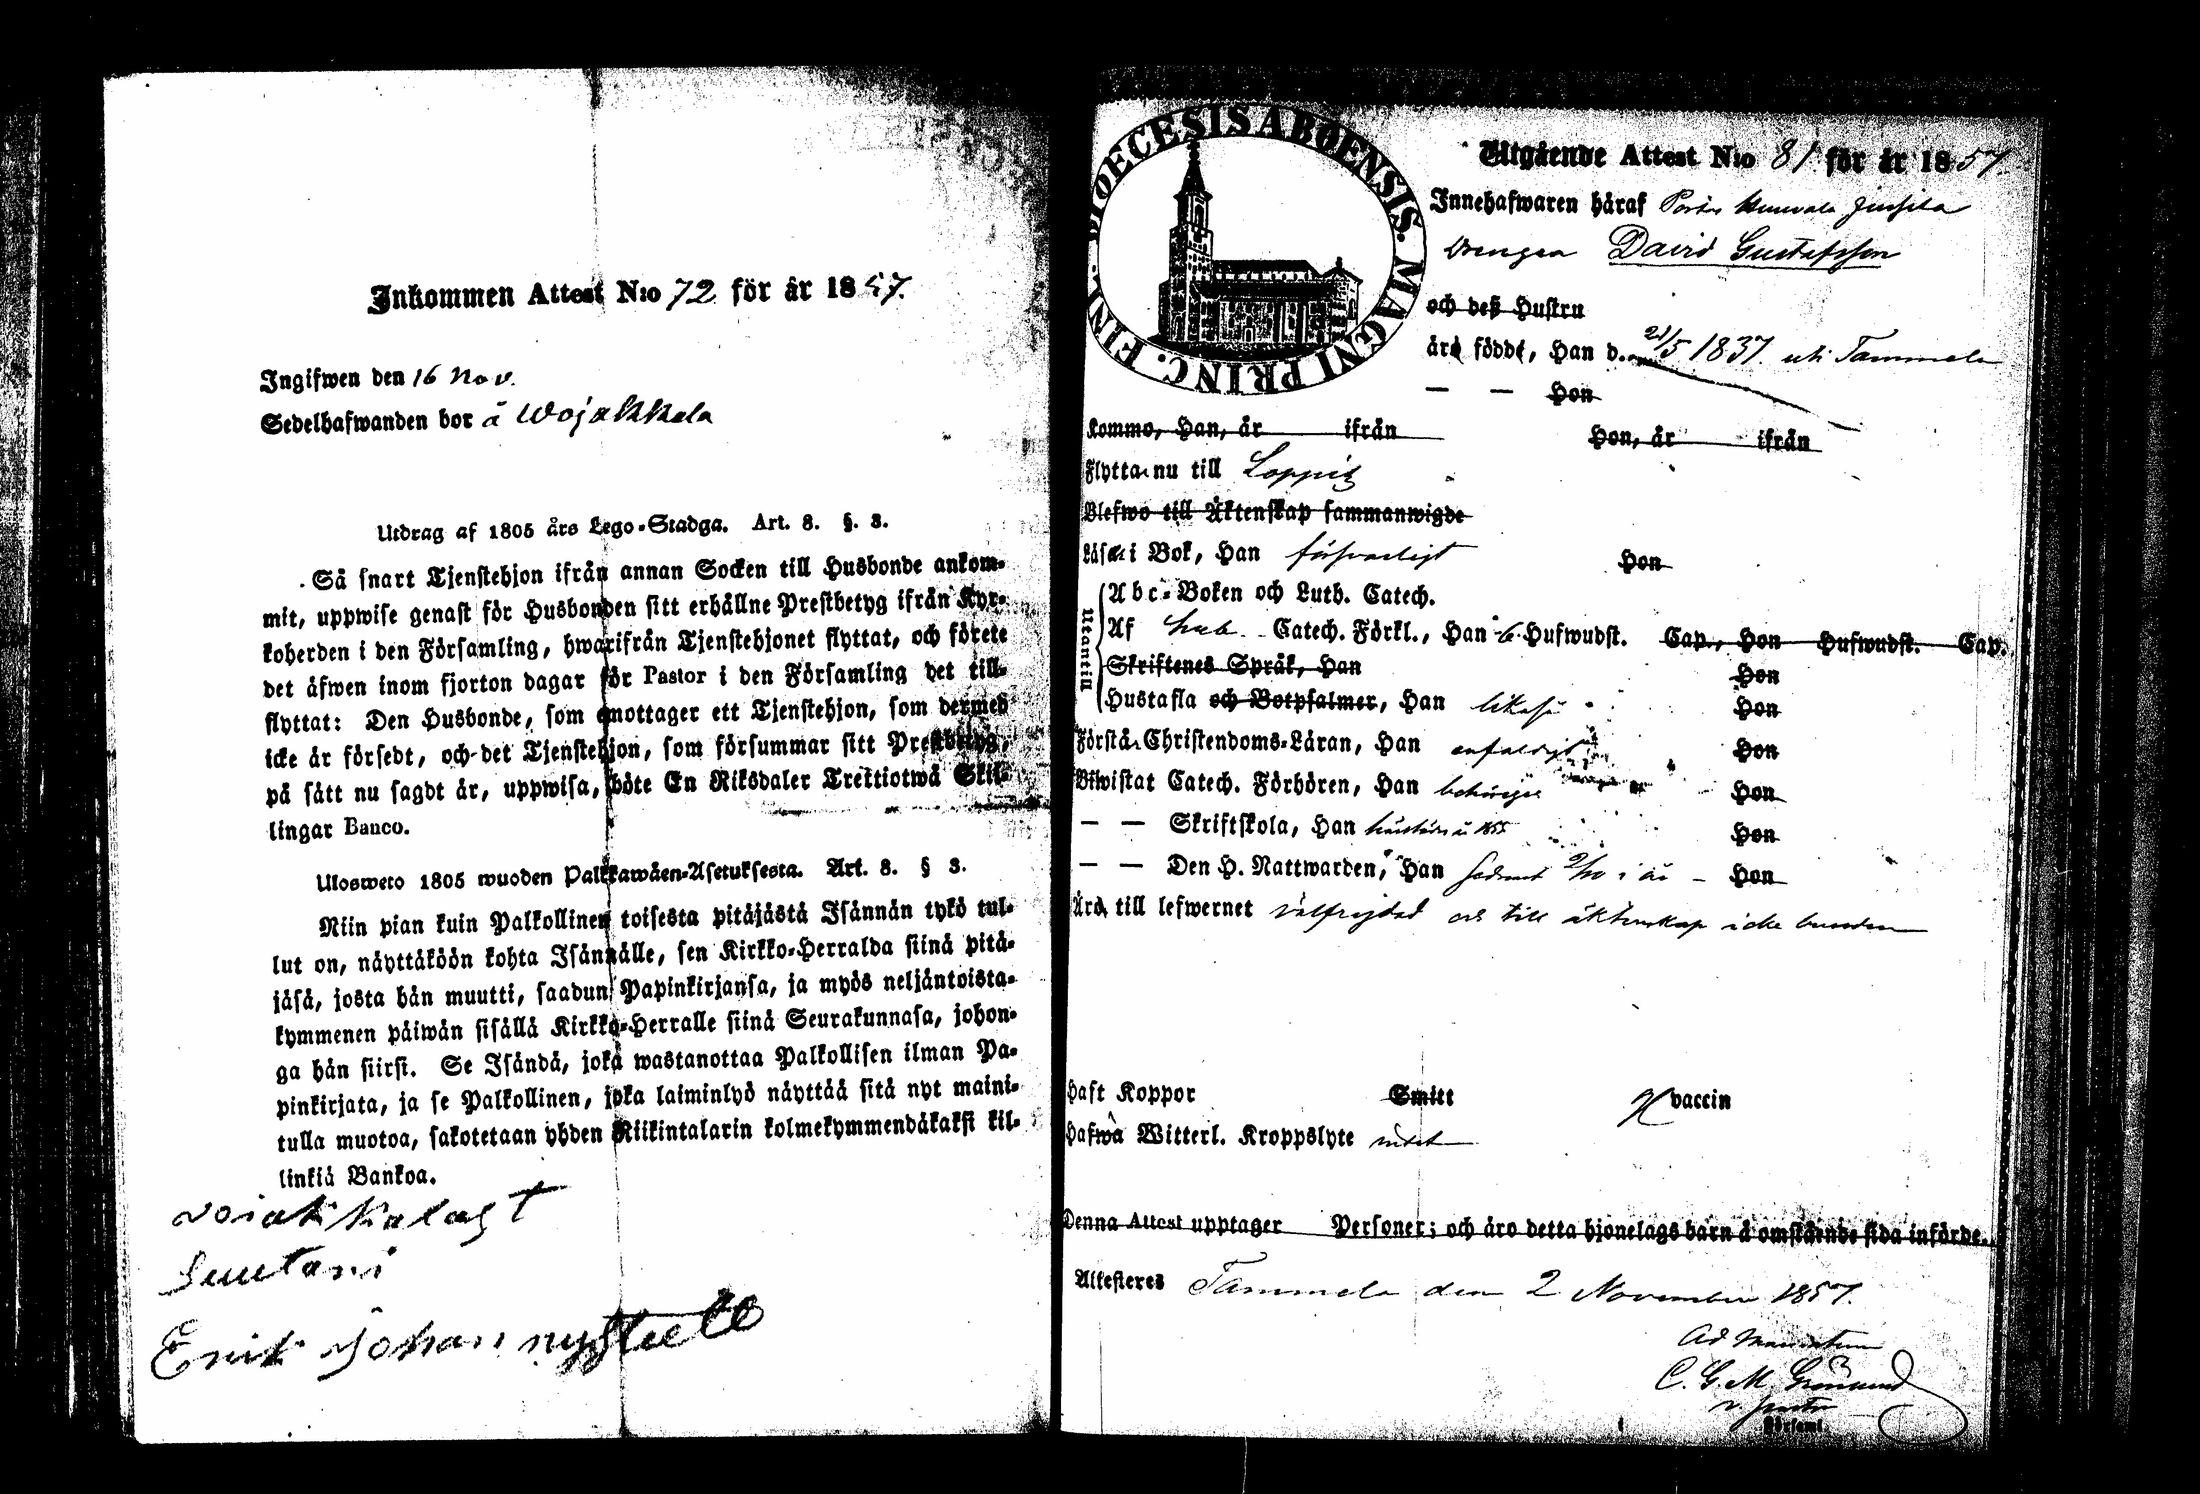 Inkommen Attest N:o 72 för år 1857.
Ingifwen den 16 Nov.
Sedelhafwanden bor å Wojakkala
Utdrag af 1805 års Lego-Stadga. Art. 8. §. 3.
Så snart Tjenstehjon ifrån annan Socken till Husbonde ankom-
mit, uppwise genast för Husbonden sitt erhållne Prestbetyg ifrån Kyr-
koherden i den Församling, hwarifrån Tjenstehjonet flyttat, och förete
det äfwen inom fjorton dagar för Pastor i den Församling det till-
flyttat: Den Husbonde, som emottager ett Tjenstehjon, som dermed
icke är försedt, och det Tjenstehjon, som försummar sitt Prestbetyg,
på sätt nu sagdt är, uppwisa, böte En Riksdaler Trettiotwå Skil-
lingar Banco.
Ulosweto 1805 wuoden Palkkawäen-Asetuksesta. Art. 8. § 3.
Niin pian kuin Palkollinen toisesta pitäjästä Isännän tykö tul-
lut on, näyttäköön kohta Isännälle, sen Kirkko-Herralda siinä pitä-
jäsä, josta hän muutti, saadun Papinkirjansa, ja myös neljäntoista-
kymmenen päiwän sisällä Kirkko-Herralle siinä Seurakunnasa, johon-
ga hän siirsi. Se Isändä, joka wastanottaa Palkollisen ilman Pa-
pinkirjata, ja se Palkollinen, joka laiminlyö näyttää sitä nyt maini-
tulla muotoa, sakotetaan yhden Riikintalarin kolmekymmendäkaksi kil-
linkiä Bankoa.
voiakkalast
Suutari
Erik Johan nystett
DIOECESIS ABOENSIS. MAGNI PRINC. FINL.
Utgående Attest N:o 81 för år 1857.
Innehafwaren häraf
Drengen David Gustafsson
och deß Hustru
äro födde, Han d. 21/5 1837 uti Tammela
— — Hon
Kommo, Han, år ifrån Hon, år ifrån
Flytta nu till Loppis
Blefwo till Äktenskap sammanwigde
Läsa i Bok, Han försvarligt Hon
Utantill
Abc-Boken och Luth. Catech.
Af Catech. Förkl., Han 6 Hufwudst. Cap., Hon Hufwudst. Cap.
Skriftenes Språk, Han Hon
Hustafla och Botpsalmer, Han likaså Hon
Förstå Christendoms-Läran, Han enfaldigt Hon
Biwistat Catech. Förhören, Han behörigen Hon
— — Skriftskola, Han 1855 Hon
— — Den H. Nattwarden, Han i år — Hon
Äro till lefwernet välfrejdad och till äktenskap icke bunden
Haft Koppor Smitt vaccin
Hafwa Witterl. Kroppslyte intet
Denna Attest upptager Personer; och äro detta hjonelags barn å omstående sida införde.
Attesteres Tammela den 2 November 1857.
Ad Mandatum
C. G. M. Grönlund
v. pastor
Församl.